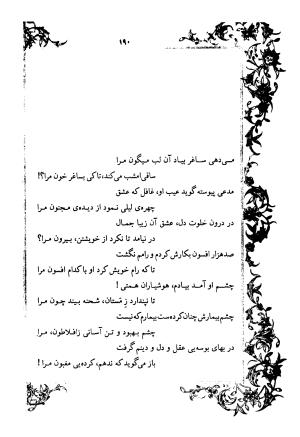 ۱۹۰
می‌دهی ساغر بیاد آن لب میگون مرا
ساقی امشب می‌کند، تا کی بساغر خون مرا؟!
مدعی پیوسته گوید عیب او، غافل که عشق
چهره‌ی لیلی نمود از دیده‌ی مجنون مرا
در درون خلوت دل، عشق آن زیبا جمال
در نیامد تا نکرد از خویشتن، بیرون مرا؟
صدهزار افسون بکارش کردم و رامم نگشت
تا که رام خویش کرد او با کدام افسون مرا
چشم او آمد بیادم، هوشیاران همتی!
تا نپندارد ز مستان، شحنه بیند چون مرا
چشم بیمارش چنان کرده‌ست بیمارم که نیست
چشم بهبود و تن آسانی ز افلاطون، مرا
در بهای بوسه‌یی عقل و دل و دینم گرفت
باز می‌گوید که ندهم، کرده‌یی مغبون مرا!